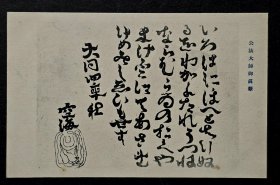 弘法大師御真蹟
いろはにほへとちりぬ
るをわかよたれそつね
ならむうゐのおくや
まけふこえてあさき
ゆめみしゑひもせす
大同四年
空海